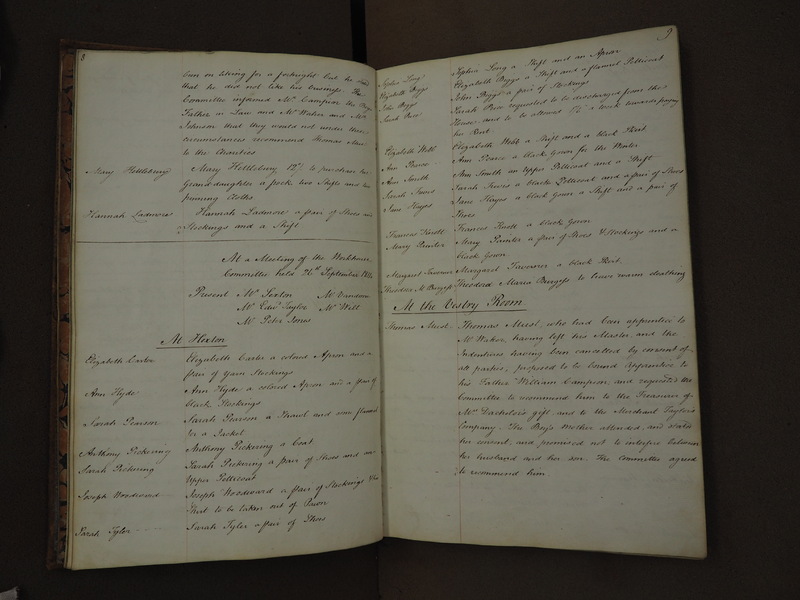 8
been on liking for a fortnight but he stated
that he did not like his business. The
Committee informed Mr. Campion the Boys
Father in Law and Mr. Walter and Mr.
Johnson that they would not under these
circumstances recommend Thomas Must
to the Charities
Mary Hettlebury Mary Hettlebury, 12/. to purchase her
Granddaughter a frock two Shifts and two
pinning Cloths
Hannah Ladmore Hannah Ladmore a pair of Shoes and
Stockings and a Shift
At a Meeting of the Workhouse
Committee held 21st September
Present Mr. Sexton Mr. Vandome
Mr. Edwd. Taylor Mr. Witt
Mr. Peter Jones
At Hoxton
Elizabeth Carter Elizabeth Carter a colored Apron and a
pair of Yarn Stockings
Ann Hyde Ann Hyde a colored Apron and a pair of
black Stockings
Sarah Pearson Sarah Pearson a Shawl and some flannel
for a Jacket
Anthony Pickering Anthony Pickering a Coat
Sarah Pickering Sarah Pickering a pair of Shoes and an
Upper Petticoat
Joseph Woodward Joseph Woodward a pair of Stockings
Shirt to be taken out of Pawn
Sarah Tyler Sarah Tyler a pair of Shoes
9
Sophia Long Sophia Long a Shift and an Apron
Elizabeth Beggs Elizabeth Beggs a Shift and a flannel Petticoat
John Beggs John Beggs a pair of Stockings
Sarah Price Sarah Price requested to be discharged from the
House and to be allowed a week towards paying
her Rent
Elizabeth Webb Elizabeth Webb a Shift and a black Skirt
Ann Pearce Ann Pearce a black Gown for the Winter
Ann Smith Ann Smith an Upper Petticoat and a Shift
Sarah Sneres Sarah Sneres a black Petticoat and a pair of Shoes
Jane Hayes Jane Hayes a black Gown a Shift and a pair of
Shoes
Frances Knott Frances Knott a black Gown
Mary Painter Mary Painter a pair of Shoes & Stockings and a
black Gown
Margaret Taverner Margaret Taverner a black Skirt
Theodora M Burgess Theodora Maria Burgess to leave warm cloathing
At the Vestry Room
Thomas Must Thomas Must, who had been apprentice to
Mr. Walker, having left his Master, and the
Indentures having been cancelled by consent of
all parties, proposed to be bound Apprentice to
his Father William Campion, and requested the
Committee to recommend him to the Treasurer of
Mr. Dachelor's gift and to the Merchant Taylor's
Company. The Boy's Mother attended and stated
her consent, and promised not to interfere between
her husband and her son. The Committee agreed
to recommend him.